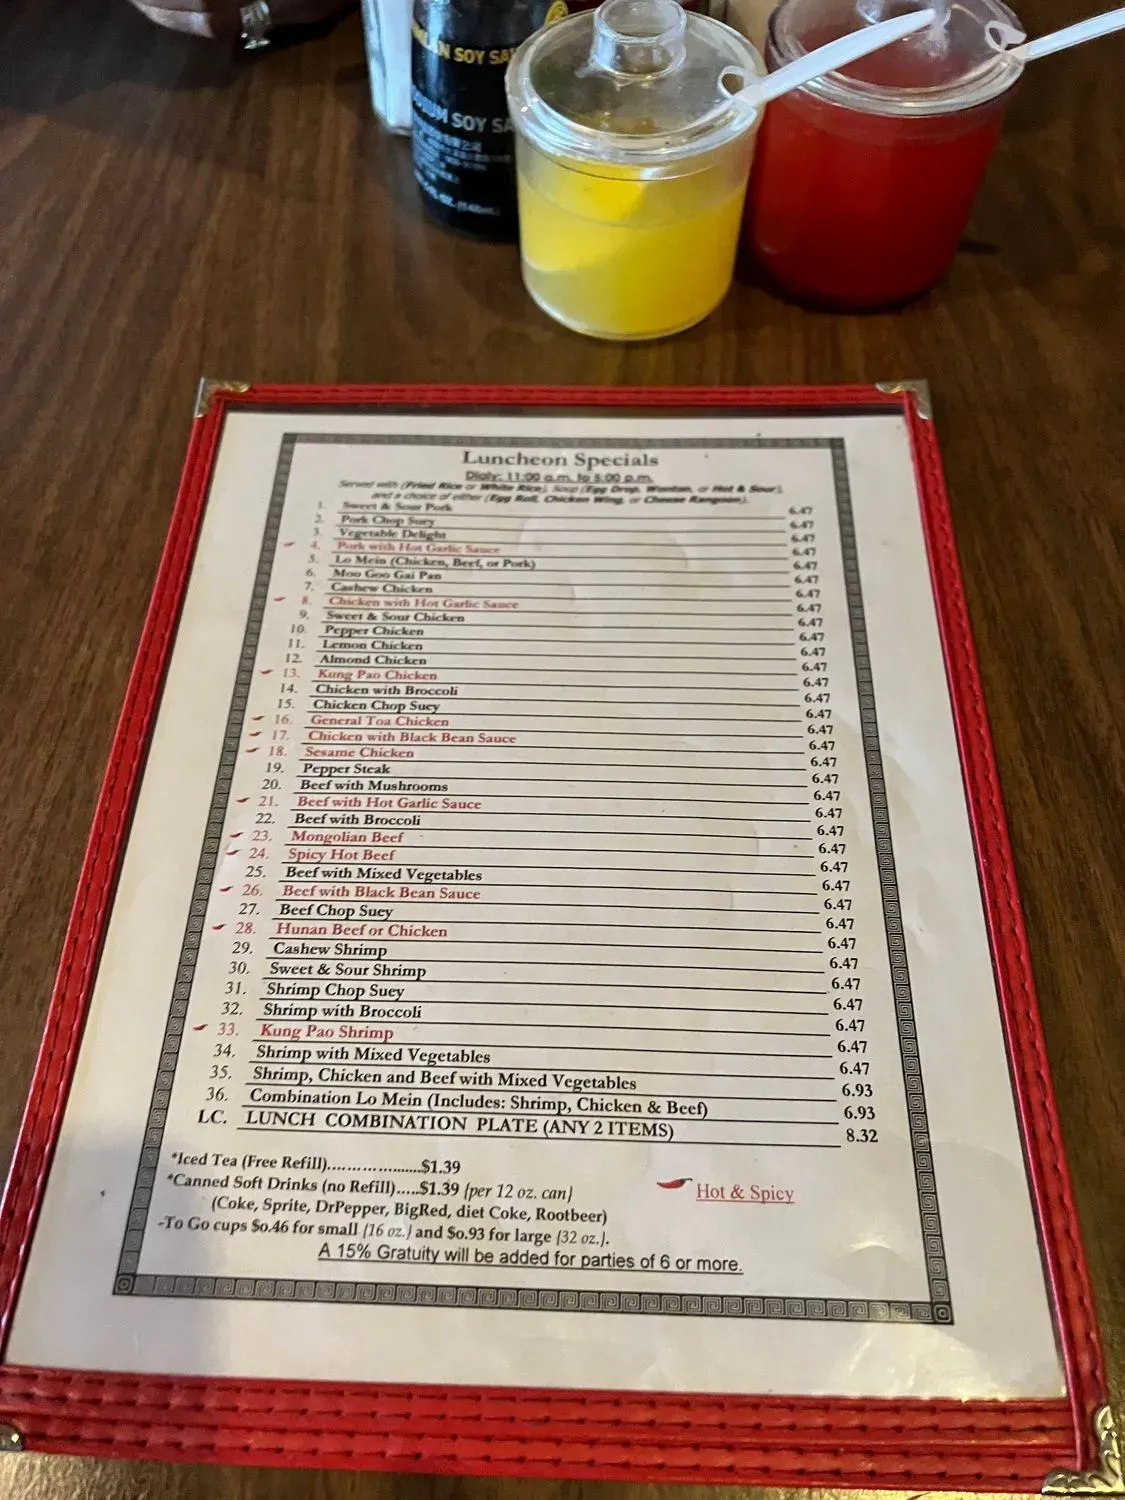 SOY SA
SOY SA
Luncheon Specials
Dialy: 11:00 a.m. to 5:00 p.m.
Served with (Fried Rice or White Rice), Soup (Egg Drop, Wonton, or Hot & Sour),
and a choice of either (Egg Roll, Chicken Wing, or Cheese Rangoon).
1. Sweet & Sour Pork 6.47
2. Pork Chop Suey 6.47
3. Vegetable Delight 6.47
4. Pork with Hot Garlic Sauce 6.47
5. Lo Mein (Chicken, Beef, or Pork) 6.47
6. Moo Goo Gai Pan 6.47
7. Cashew Chicken 6.47
8. Chicken with Hot Garlic Sauce 6.47
9. Sweet & Sour Chicken 6.47
10. Pepper Chicken 6.47
11. Lemon Chicken 6.47
12. Almond Chicken 6.47
13. Kung Pao Chicken 6.47
14. Chicken with Broccoli 6.47
15. Chicken Chop Suey 6.47
16. General Toa Chicken 6.47
17. Chicken with Black Bean Sauce 6.47
18. Sesame Chicken 6.47
19. Pepper Steak 6.47
20. Beef with Mushrooms 6.47
21. Beef with Hot Garlic Sauce 6.47
22. Beef with Broccoli 6.47
23. Mongolian Beef 6.47
24. Spicy Hot Beef 6.47
25. Beef with Mixed Vegetables 6.47
26. Beef with Black Bean Sauce 6.47
27. Beef Chop Suey 6.47
28. Hunan Beef or Chicken 6.47
29. Cashew Shrimp 6.47
30. Sweet & Sour Shrimp 6.47
31. Shrimp Chop Suey 6.47
32. Shrimp with Broccoli 6.47
33. Kung Pao Shrimp 6.47
34. Shrimp with Mixed Vegetables 6.47
35. Shrimp, Chicken and Beef with Mixed Vegetables 6.93
36. Combination Lo Mein (Includes: Shrimp, Chicken & Beef) 6.93
LC. LUNCH COMBINATION PLATE (ANY 2 ITEMS) 8.32
*Iced Tea (Free Refill)......................$1.39
*Canned Soft Drinks (no Refill).....$1.39 (per 12 oz. can)
(Coke, Sprite, DrPepper, BigRed, diet Coke, Rootbeer)
-To Go cups $0.46 for small (16 oz.) and $0.93 for large (32 oz.).
Hot & Spicy
A 15% Gratuity will be added for parties of 6 or more.